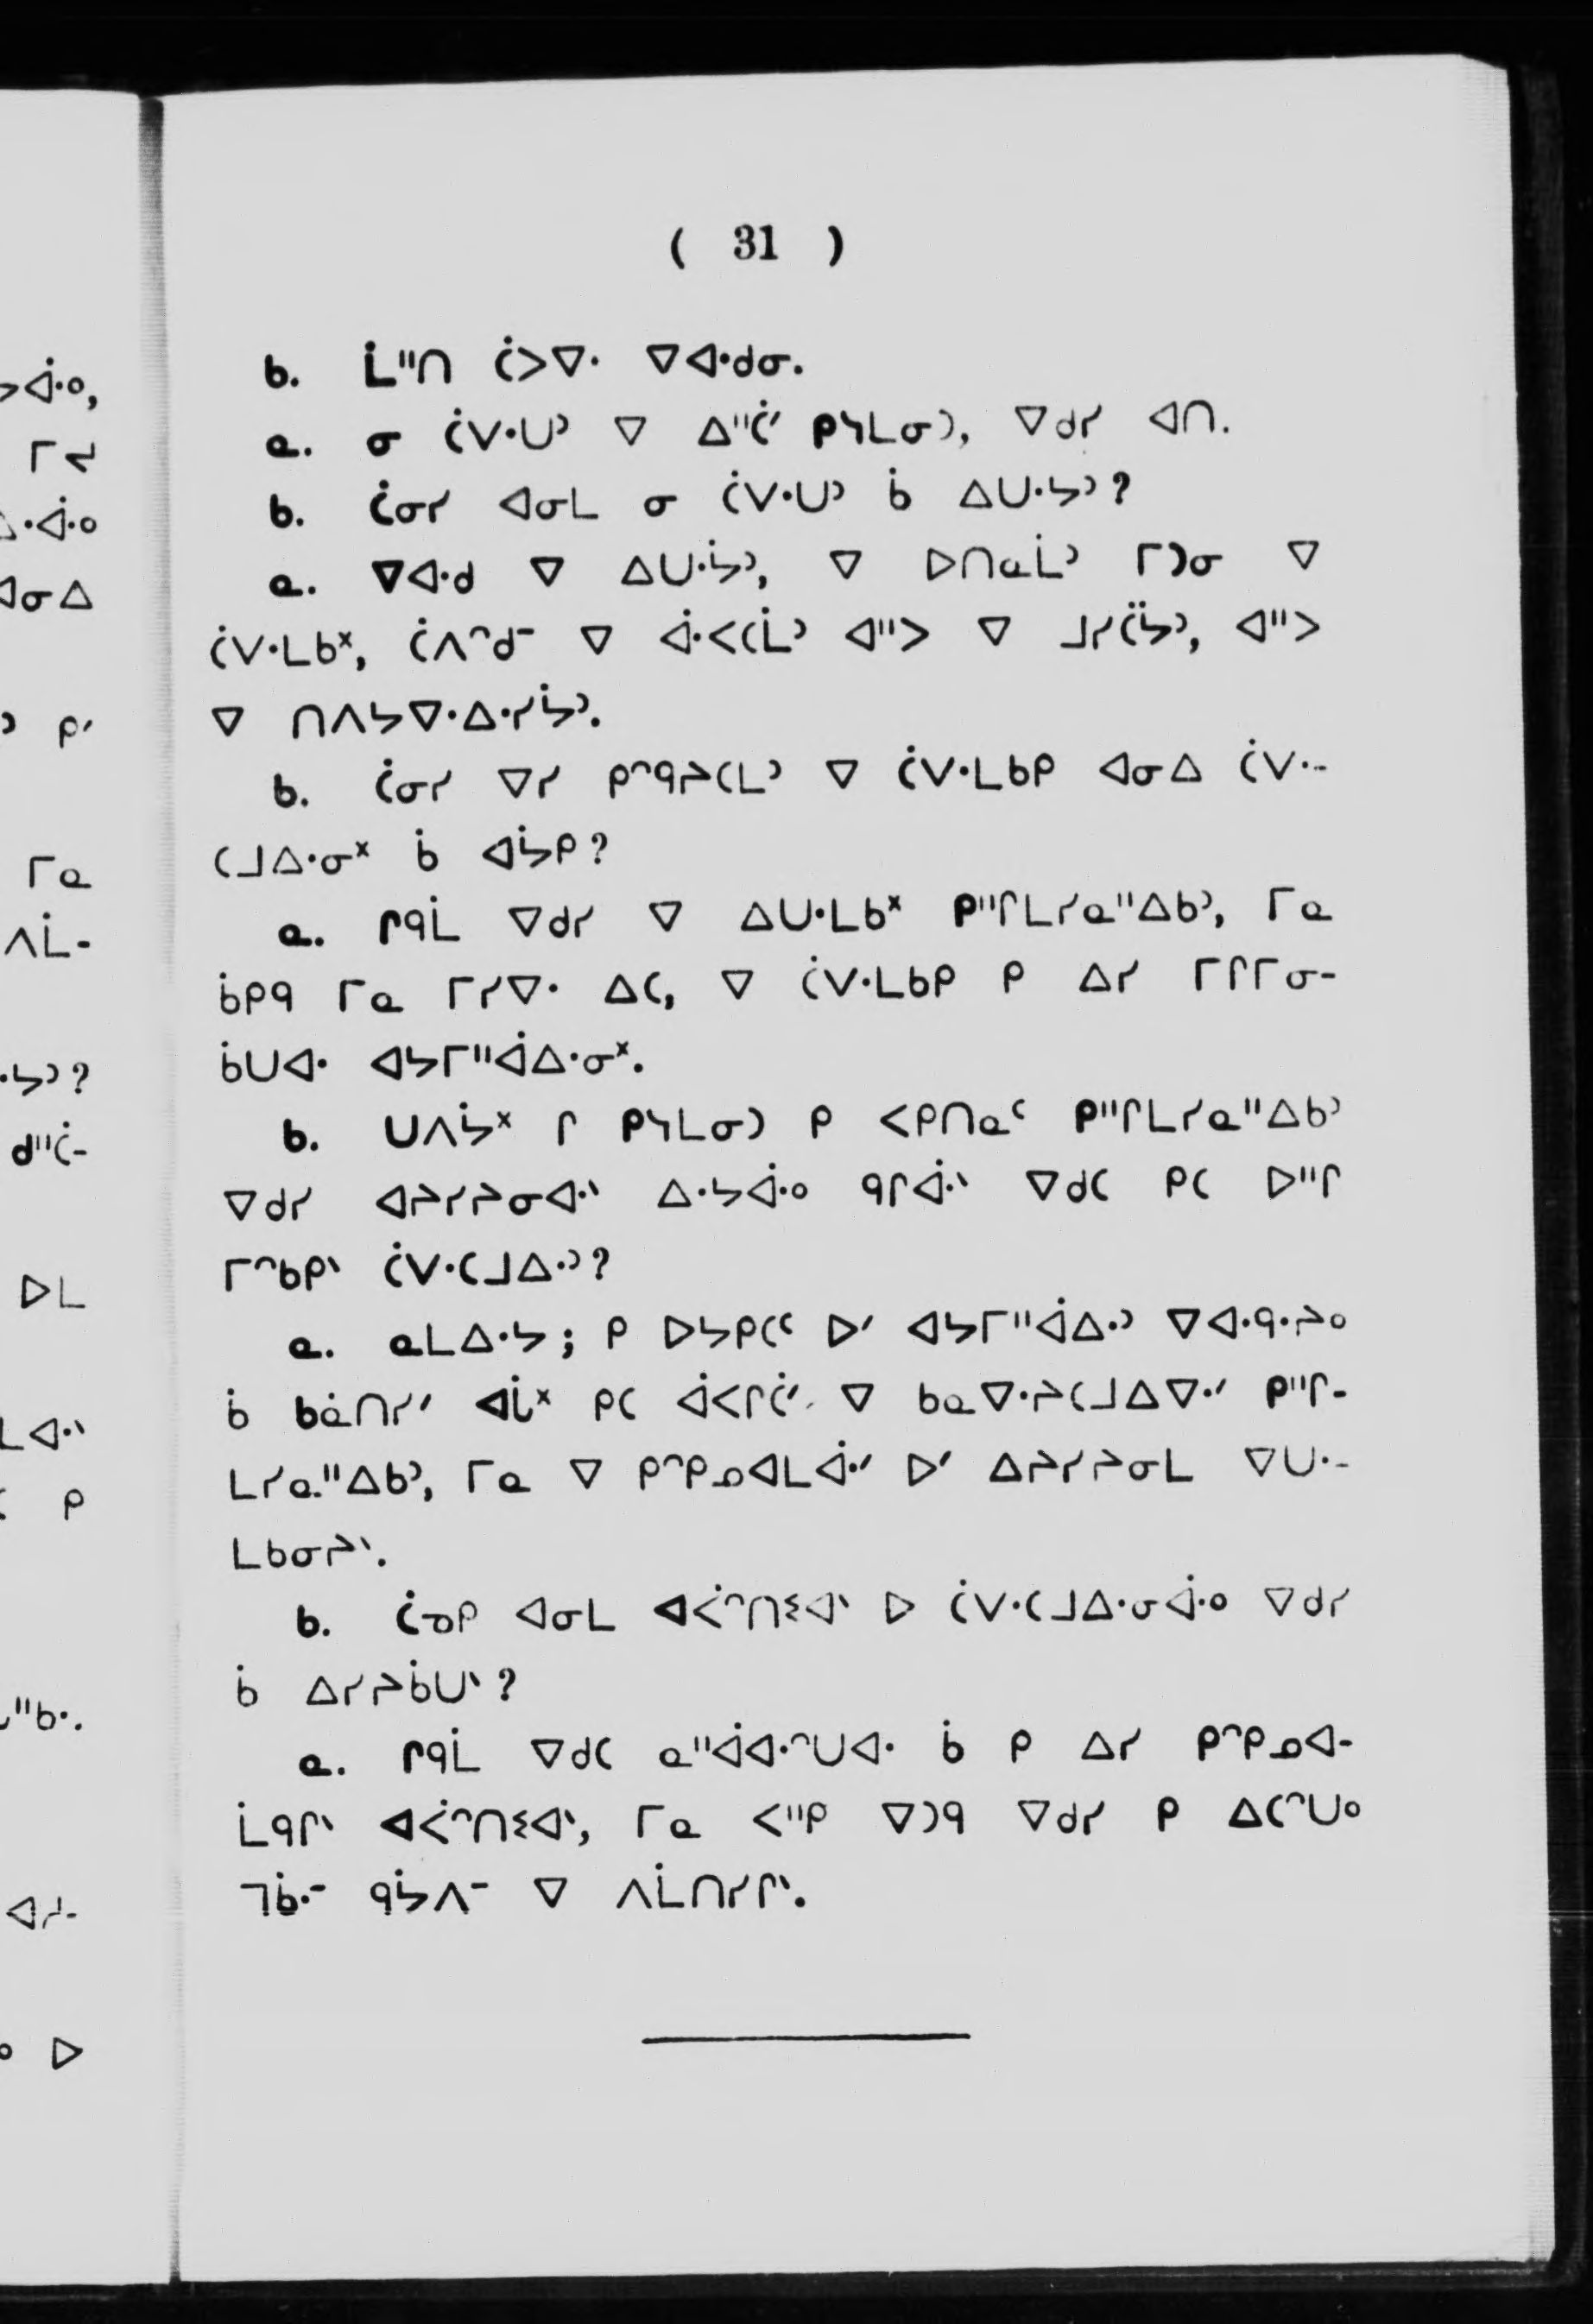 ( 31 )
ᑲ. ᒫᐦᑎ ᑖᐳᐁᐧ ᐁᐊᐧᑯᓂ.
ᓇ. ᓂ ᑖᐯᐧᑌᐣ ᐁ ᐃᐦᑖᐟ ᑭᓴᒪᓂᑐ, ᐁᑯᓯ ᐊᑎ.
ᑲ. ᑖᓂᓯ ᐊᓂᒪ ᓂ ᑖᐯᐧᑌᐣ ᑳ ᐃᑌᐧᔭᐣ?
ᓇ. ᐁᐊᐧᑯ ᐁ ᐃᑌᐧᔮᐣ, ᐁ ᐅᑎᓇᒫᐣ ᒥᑐᓂ ᐁ
ᑖᐯᐧᒪᑲᕽ, ᑖᐱᐢᑯᐨ ᐁ ᐚᐸᑕᒫᐣ ᐊᐦᐳ ᐁ ᒧᓯᑖᔮᐣ, ᐊᐦᐳ
ᐁ ᑎᐱᔭᐁᐧᐃᐧᓯᔮᐣ.
ᑲ. ᑖᓂᓯ ᐁᓯ ᑭᐢᑫᔨᑕᒪᐣ ᐁ ᑖᐯᐧᒪᑲᑭ ᐊᓂᐃ ᑖᐯᐧ-
ᑕᒧᐃᐧᓂᕽ ᑳ ᐊᔮᑭ?
ᓇ. ᒋᑫᒫ ᐁᑯᓯ ᐁ ᐃᑌᐧᒪᑲᕽ ᑭᐦᒋᒪᓯᓇᐦᐃᑲᐣ, ᒥᓇ
ᑳᑭᑫ ᒥᓇ ᒥᓯᐁᐧ ᐃᑕ, ᐁ ᑖᐯᐧᒪᑲᑭ ᑭ ᐃᓯ ᒥᒋᒥᓂ-
ᑳᑌᐊᐧ ᐊᔭᒥᐦᐋᐃᐧᓂᕽ.
ᑲ. ᑌᐱᔭᕽ ᒋ ᑭᓴᒪᓂᑐ ᑭ ᐸᑭᑎᓇᑦ ᑭᐦᒋᒪᓯᓇᐦᐃᑲᐣ
ᐁᑯᓯ ᐊᔨᓯᔨᓂᐊᐧᐠ ᐃᐧᔭᐚᐤ ᑫᒋᐚᐠ ᐁᑯᑕ ᑭᑕ ᐅᐦᒋ
ᒥᐢᑲᑭᐠ ᑖᐯᐧᑕᒧᐃᐧᐣ?
ᓇ. ᓇᒪᐃᐧᔭ; ᑭ ᐅᔭᑭᑕᑦ ᐅᐟ ᐊᔭᒥᐦᐋᐃᐧᐣ ᐁᐊᐧᑫᐧᔨᐤ
ᑳ ᑲᓈᑎᓯᐟ ᐊᒑᕽ ᑭᑕ ᐋᐸᒋᑖᐟ ᐁ ᑲᓇᐁᐧᔨᑕᒧᐃᐁᐧᐟ ᑭᐦᒋ-
ᒪᓯᓇᐦᐃᑲᐣ, ᒥᓇ ᐁ ᑭᐢᑭᓄᐊᒪᐚᐟ ᐅᐟ ᐃᔨᓯᔨᓂᒪ ᐁᑌᐧ-
ᒪᑲᓂᔨᐠ.
ᑲ. ᑖᓀᑭ ᐊᓂᒪ ᐊᐹᐢᑎᕒᐊᐠ ᐅ ᑖᐯᐧᑕᒧᐃᐧᓂᐚᐤ ᐁᑯᓯ
ᑳ ᐃᓯᔨᑳᑌᐠ?
ᓇ. ᒋᑫᒫ ᐁᑯᑕ ᓇᐦᐋᐊᐧᐢᑌᐊᐧ ᑳ ᑭ ᐃᓯ ᑭᐢᑭᓄᐊ-
ᒫᑫᒋᐠ ᐊᐹᐢᑎᕒᐊᐠ, ᒥᓇ ᐸᐦᑭ ᐁᑐᑫ ᐁᑯᓯ ᑭ ᐃᑕᐢᑌᐤ
ᒣᑳᐧᐨ ᑫᔮᐱᐨ ᐁ ᐱᒫᑎᓯᒋᐠ.